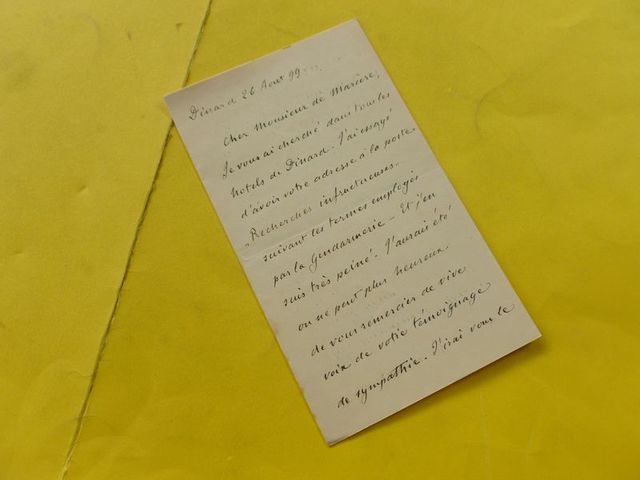 Dinard 26 Aout 99
Cher Monsieur de
Je vous ai cherché dans tous les
hotels de Dinard. J'ai essayé
d'avoir votre adresse à la poste.
Recherches infructueuses
suivant les termes employés
par la Gendarmerie - Et j'en
suis très peiné. J'aurais été
on ne peut plus heureux
de vous remercier de vive
voix de votre témoignage
de sympathie. J'irai vous le